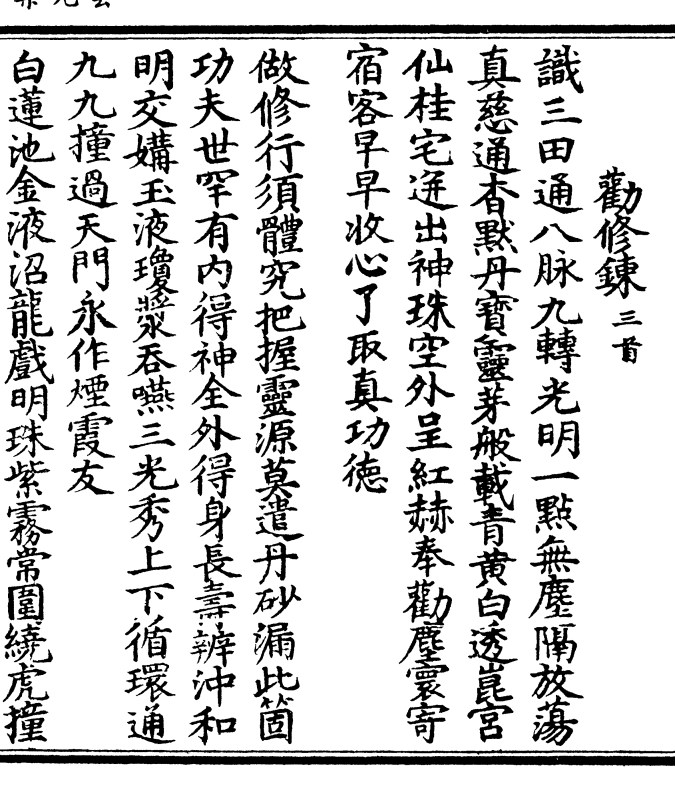 勸修鍊三首
識三田通八脉九轉光明一點無塵隔放蕩
真慈通杳默丹寶靈芽般載青黄白透崑宮
仙桂宅迸出神珠空外呈紅赫奉勸塵寰寄
宿客早早收心了取真功德
做修行須體究把握靈源莫遣丹砂漏此箇
功夫世罕有内得神全外得身長壽辨沖和
明交媾玉液瓊漿吞嚥三光秀上下循環通
九九撞過天門永作煙霞友
白蓮池金液沼龍戲明珠紫霧常圍繞虎撞